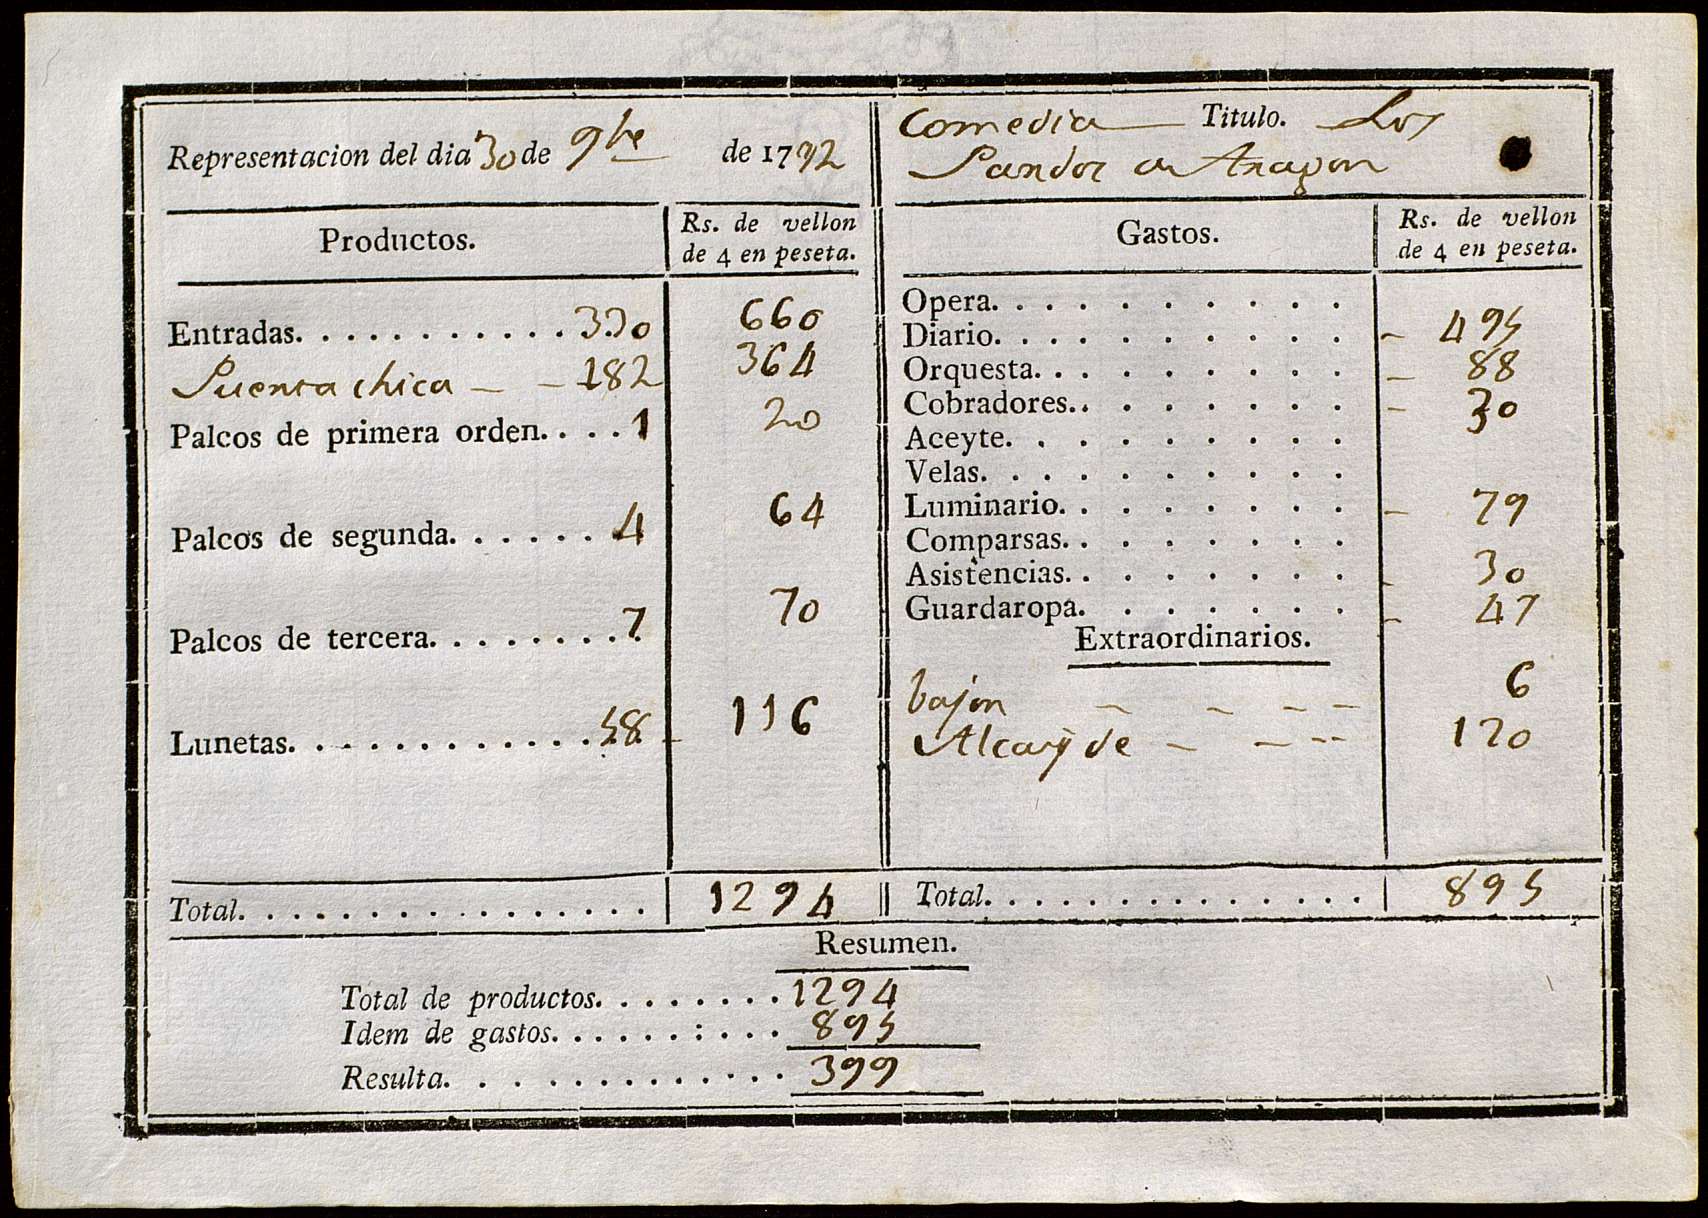 Representacion del dia 30 de 9bre de 1792
Comedia Titulo. Los
Vandos en Aragon
Productos.
Rs. de vellon
de 4 en peseta.
Entradas. . . . . . . . . . . 330 660
Puerta chica 182 364
Palcos de primera orden. . . . 1 20
Palcos de segunda. . . . . . 4 64
Palcos de tercera. . . . . . . . 7 70
Lunetas. . . . . . . . . . . . 58 116
Total. . . . . . . . . . . . . . . . 1294
Gastos.
Rs. de vellon
de 4 en peseta.
Opera. . . . . . . . . .
Diario. . . . . . . . . . 495
Orquesta. . . . . . . . . 88
Cobradores. . . . . . . . 30
Aceyte. . . . . . . . .
Velas. . . . . . . . . .
Luminario. . . . . . . . 79
Comparsas. . . . . . . .
Asistencias. . . . . . . . 30
Guardaropa. . . . . . . 47
Extraordinarios.
bajon 6
Alcayde 120
Total. . . . . . . . . . . . . . 895
Resumen.
Total de productos. . . . . . . . 1294
Idem de gastos. . . . . . : . . . 895
Resulta. . . . . . . . . . . . . 399